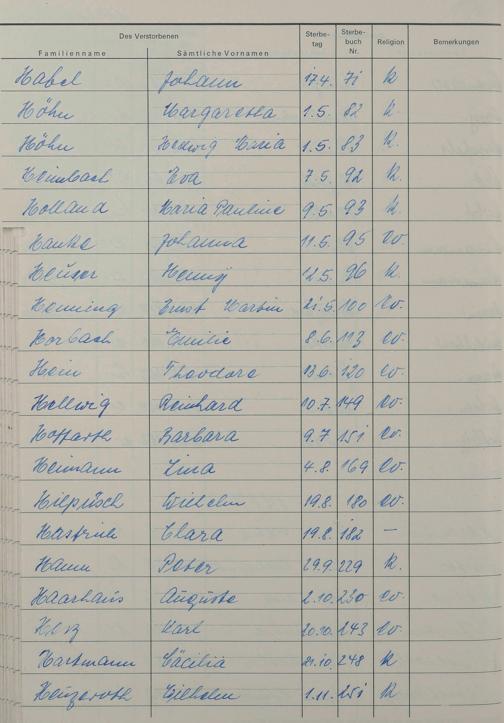 Des Verstorbenen Sterbe- Sterbe- Religion Bemerkungen
Familienname Sämtliche Vornamen tag buch Nr.
Habel Johann 17.4. 71 k
Höhn Margaretha 1.5. 82 k.
Höhn Hedwig Maria 1.5. 83 k.
Heimbach Eva 7.5. 92 k.
Holland Maria Pauline 9.5. 93 k.
Hanke Johanna 11.5. 95 ev.
Heuser Henny 12.5. 96 k.
Henning Ernst Martin 21.5. 100 ev.
Horbach Emilie 8.6. 113 ev.
Hein Theodore 13.6. 120 ev.
Hellwig Reinhard 10.7. 149 ev.
Hoffarth Barbara 9.7 151 ev.
Heimann Lina 4.8. 169 ev.
Hilpüsch Wilhelm 19.8. 180 ev.
Hastrich Clara 19.8. 182 —
Hamm Peter 29.9. 229 k.
Haarhaus Auguste 2.10. 230 ev.
Karl 20.10. 243 ev.
Hartmann Cäcilia 21.10. 248 k
Heuzeroth Wilhelm 1.11. 251 k